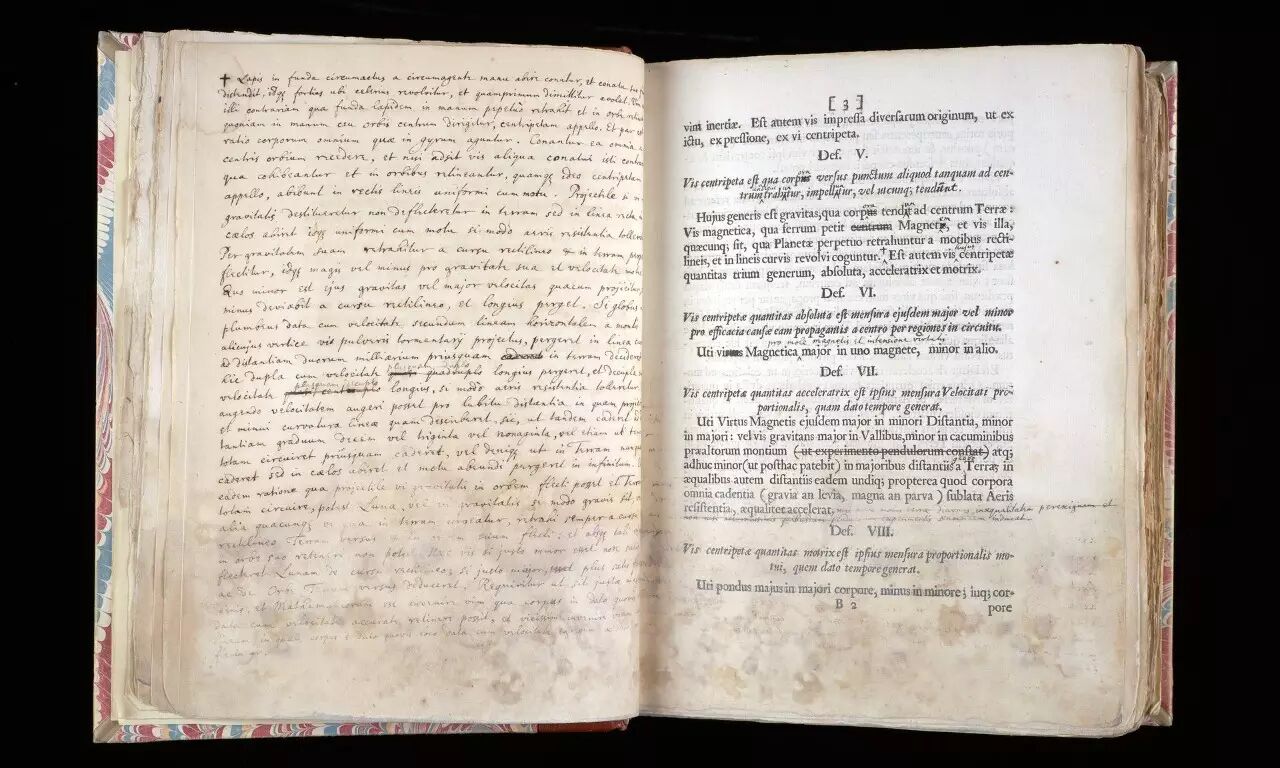 ✝ Lapis in funda circumactus a circumagente manu abire conatur, et conatu suo
distendit, idqꝫ fortius ubi celerius revolvitur, et quamprimum dimittitur avolat. Vim
isti contrariam qua funda lapidem in manum perpetuo retrahit et in orbe
quoniam in manum ceu orbis centrum dirigitur, centripetam appello. Et par est
ratio corporum omnium quæ in gyrum aguntur. Conantur ea omnia a
centris orbium recedere, et nisi adsit vis aliqua conatui isti contraria
qua cohibeantur et in orbibus retineantur, quamqꝫ ideo centripetam
appello, abibunt in rectis lineis uniformi cum motu. Projectile si
gravitatis destitueretur non deflecteretur in terram sed in linea recta
cælos abiret idqꝫ uniformi cum motu si modo aeris resistentia tolleretur
Per gravitatem suam retrahitur a cursu rectilineo & in terram perpetuo
flectitur, idqꝫ magis vel minus pro gravitate sua et velocitate motus
Quo minor est ejus gravitas vel major velocitas quacum projicitur,
minus deviabit a cursu rectilineo, et longius perget. Si globus
plumbeus data cum velocitate secundum lineam horizontalem a montis
alicujus vertice vi pulveris tormentarij projectus, pergeret in linea curva
ad distantiam duorum milliarium priusquam in terram decideret
hic dupla cum velocitate quasi duplo longius pergeret, et decupla
velocitate quasi decuplo longius, si modo aeris resistentia tolleretur
augendo velocitatem augeri posset pro lubitu distantia in quam projiceretur
et minui curvatura lineæ quam describeret, sic, ut tandem caderet
distantiam graduum decem vel triginta vel nonaginta, vel etiam ut terram
totam circuiret priusquam caderet, vel deniqꝫ ut in Terram nunquam
caderet sed in cælos abiret et motu abeundi pergeret in infinitum.
eadem ratione qua projectile vi gravitatis in orbem flecti posset et terram
totam circuire, potest Luna, vel vi gravitatis si modo gravis sit,
alia quacunqꝫ in terram urgeatur retrahi semper a cursu
rectilineo Terram versus & in orbem suum flecti: et absqꝫ tali
in orbe suo retineri non potest. Hæc vis si justo minor esset non satis
flecteret Lunam de cursu rectilineo, si justo major, plus satis
ac de Orbe Terram versus deduceret. Requiritur ut sit justæ
et Mathematicorum est invenire vim qua corpus in dato quovis
data cum velocitate accurate retineri possit, et vicissim invenire
[ 3 ]
vini inertiæ. Est autem vis impressa diversarum originum, ut ex
ictu, ex pressione, ex vi centripeta.
Def. V.
Vis centripeta est qua corpora versus punctum aliquod tanquam ad cen-
trum undique trahuntur, impelluntur, vel utcunqꝫ tendunt.
Hujus generis est gravitas, qua corpora tendunt ad centrum Terræ:
Vis magnetica, qua ferrum petit centrum Magnetem, et vis illa,
quæcunqꝫ sit, qua Planetæ perpetuo retrahuntur a motibus recti-
lineis, et in lineis curvis revolvi coguntur.✝ Est autem vis hujus centripetæ
quantitas trium generum, absoluta, acceleratrix et motrix.
Def. VI.
Vis centripetæ quantitas absoluta est mensura ejusdem major vel minor
pro efficacia causæ eam propagantis a centro per regiones in circuitu.
pro mole magnetis et intensione virtutis
Uti vis Magnetica major in uno magnete, minor in alio.
Def. VII.
Vis centripetæ quantitas acceleratrix est ipsius mensura Velocitati pro-
portionalis, quam dato tempore generat.
Uti Virtus Magnetis ejusdem major in minori Distantia, minor
in majori: vel vis gravitans major in Vallibus, minor in cacuminibus
præaltorum montium (ut experimento pendulorum constat) atqꝫ
adhuc minor (ut posthac patebit) in majoribus distantiis a Terra; in
æqualibus autem distantiis eadem undiqꝫ propterea quod corpora
omnia cadentia (gravia an levia, magna an parva) sublata Aeris
resistentia, æqualiter accelerat,
Def. VIII.
Vis centripetæ quantitas motrix est ipsius mensura proportionalis mo-
tui, quem dato tempore generat.
Uti pondus majus in majori corpore, minus in minore; iuqꝫ cor-
B 2
pore